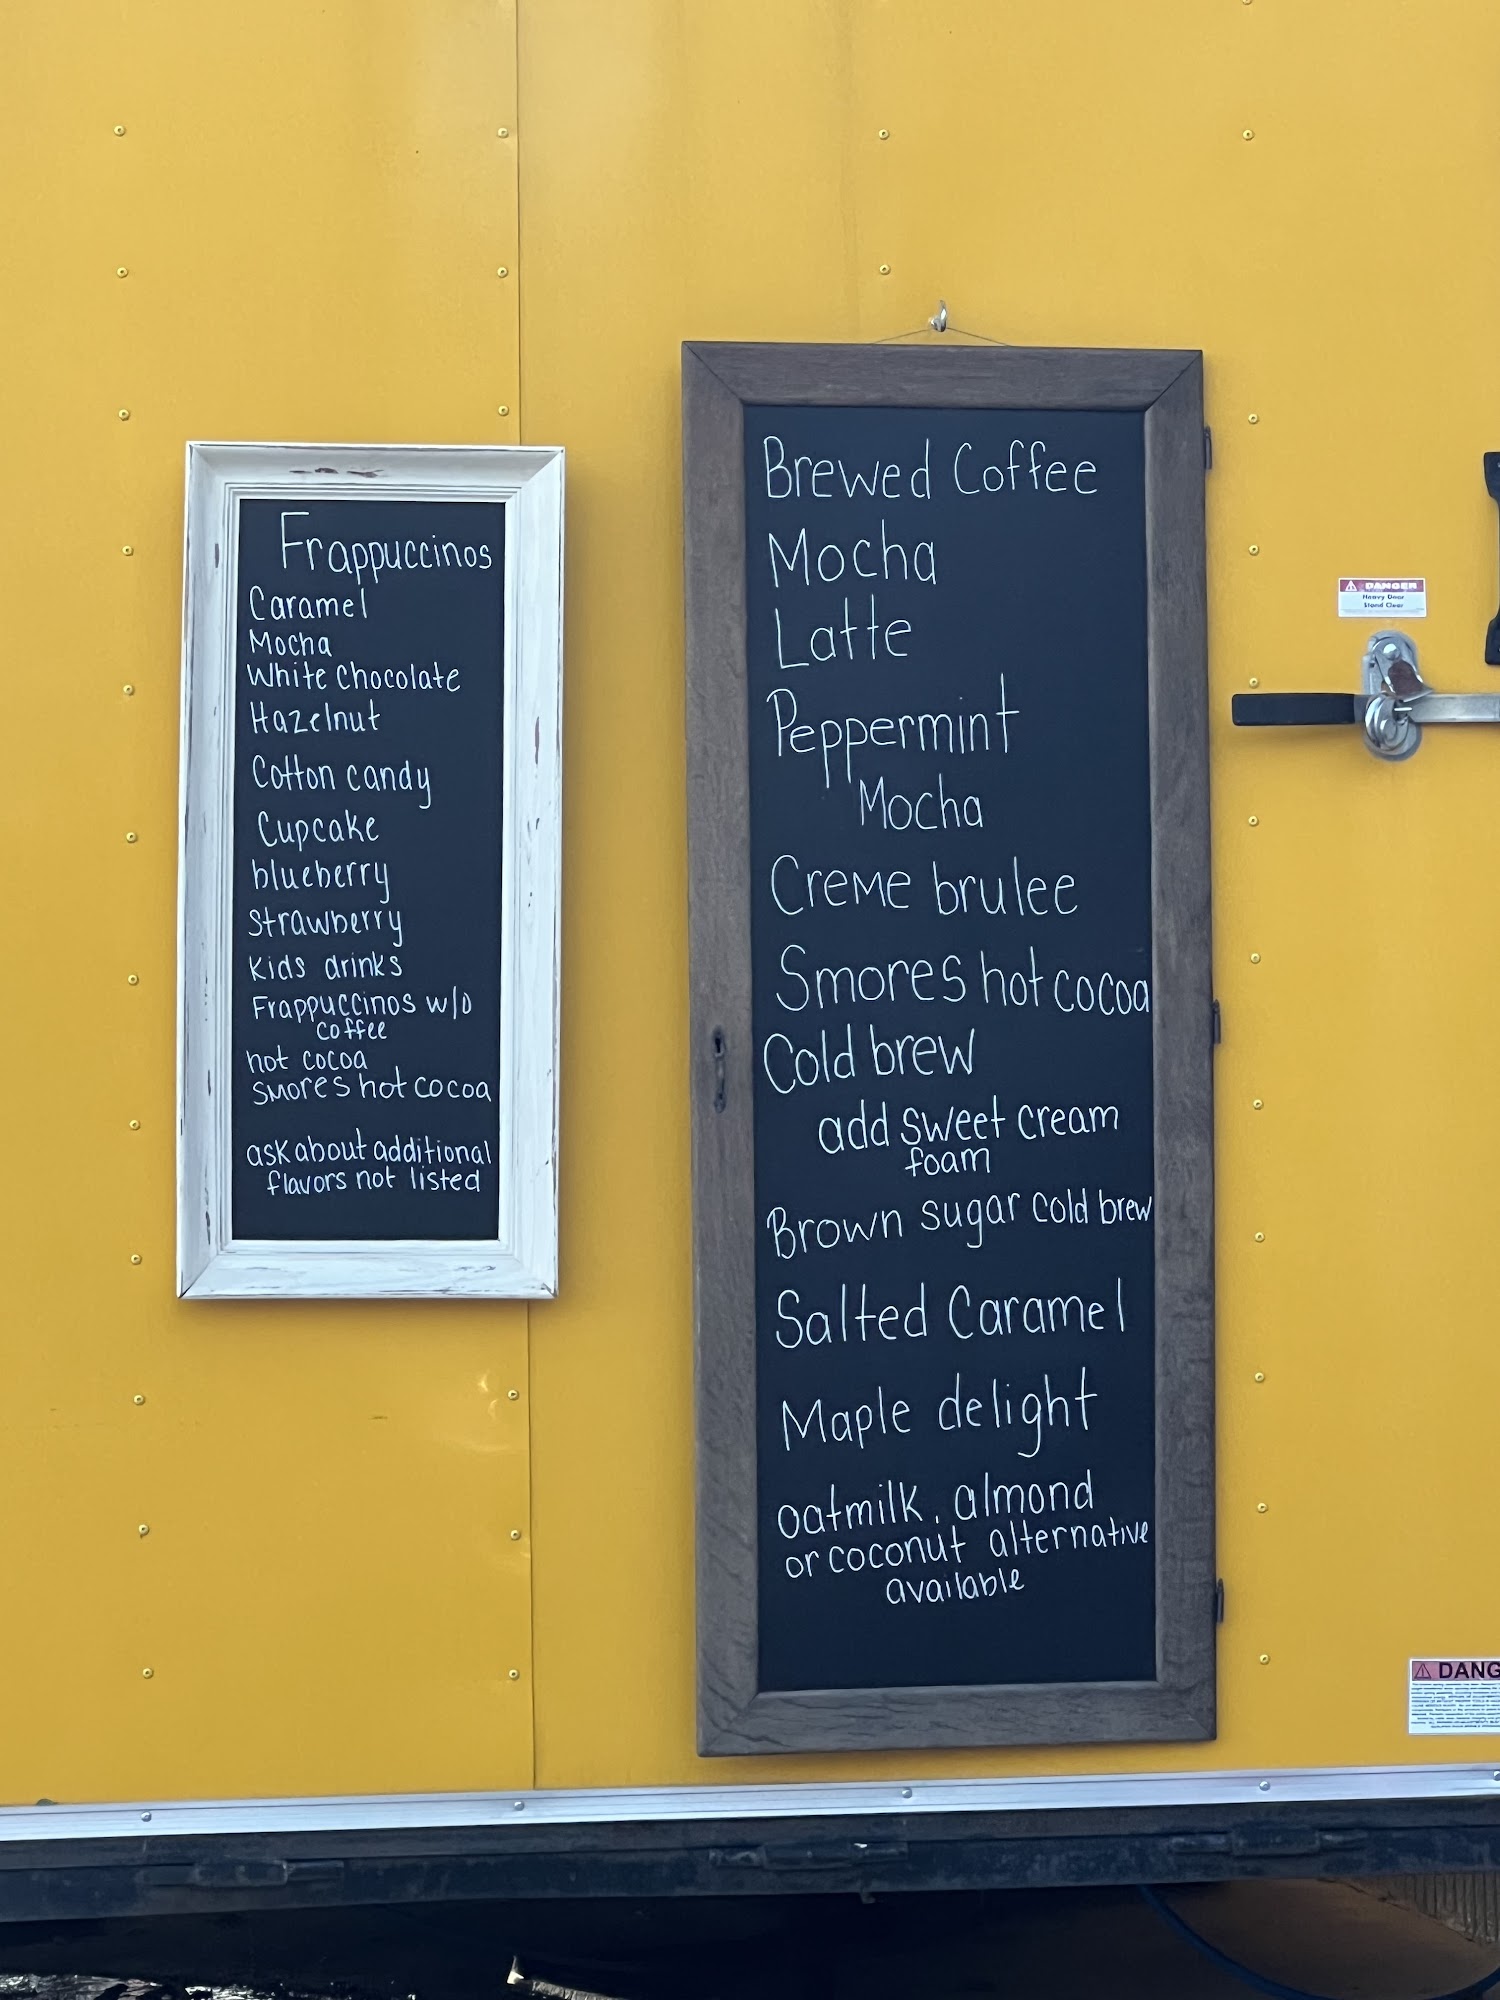 Frappuccinos
Caramel
Mocha
White Chocolate
Hazelnut
Cotton candy
Cupcake
blueberry
Strawberry
Kids drinks
Frappuccinos w/o
coffee
hot cocoa
smores hot cocoa
ask about additional
flavors not listed
Brewed Coffee
Mocha
Latte
Peppermint
Mocha
Creme brulee
Smores hot cocoa
Cold brew
add sweet cream
foam
Brown sugar cold brew
Salted Caramel
Maple delight
oatmilk, almond
or coconut alternative
available
DANGER
Heavy Door
Stand Clear
DANG